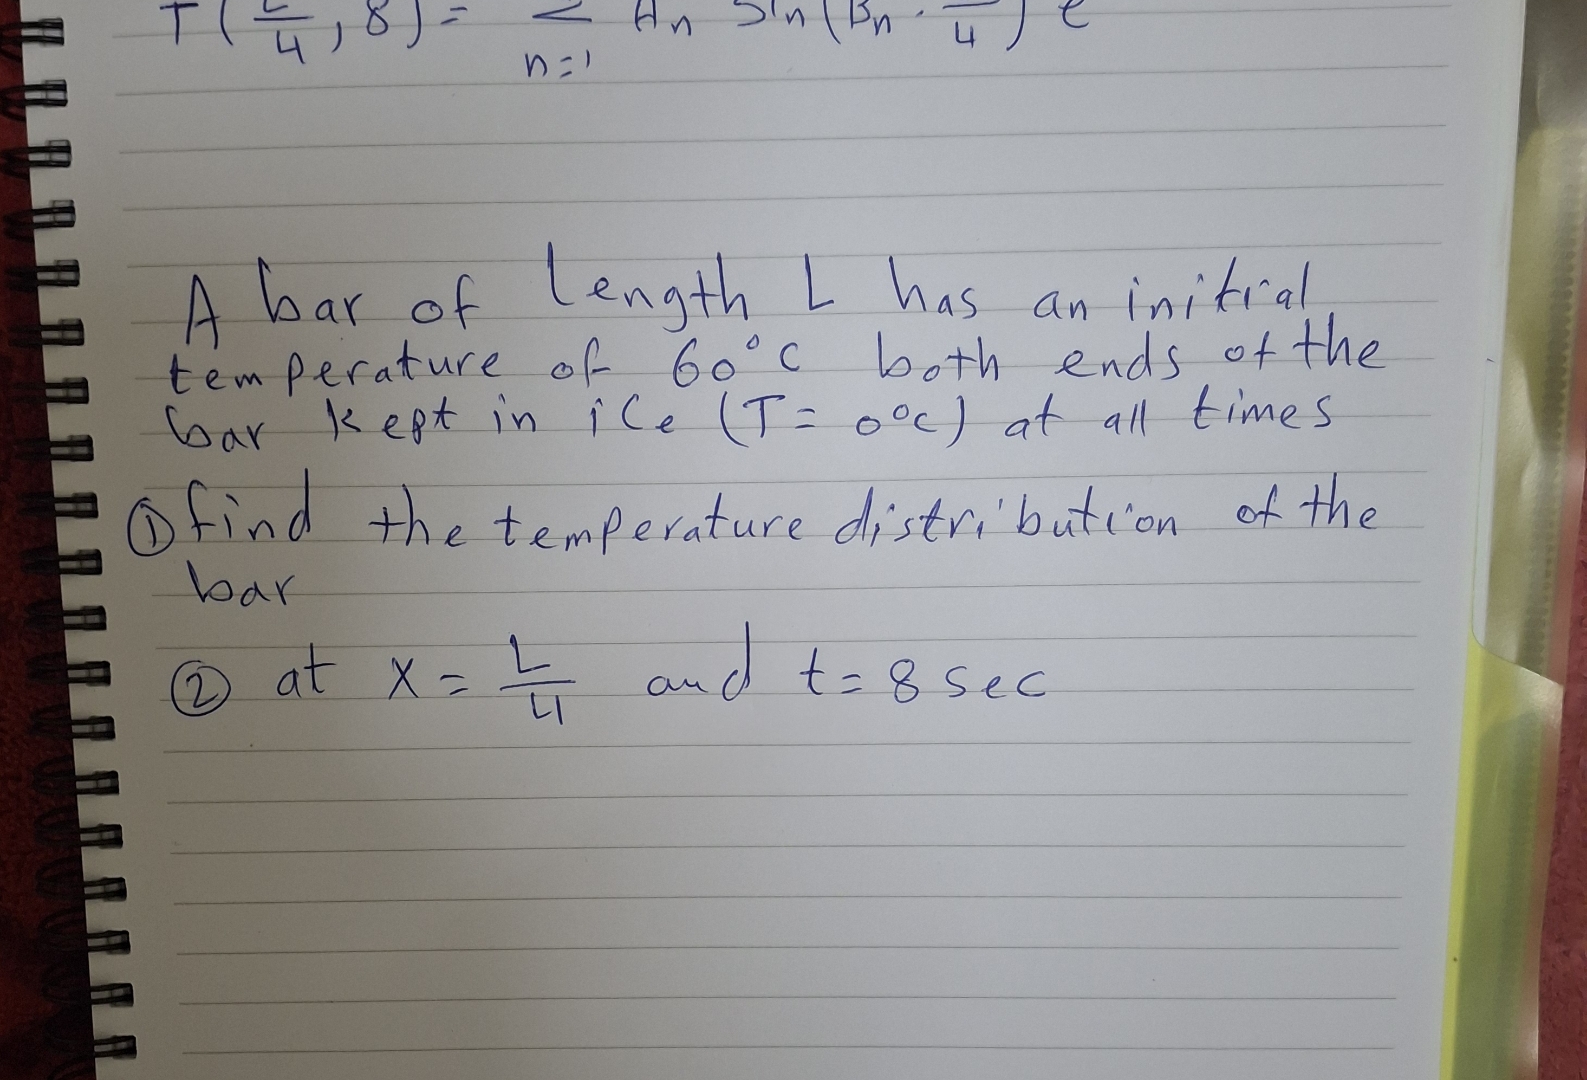 T(L/4, 8) = Σ An Sin(Bn · /4) e
n=1
A bar of length L has an initial
temperature of 60°C both ends of the
bar kept in ice (T= 0°C) at all times
① find the temperature distribution of the
bar
② at x = L/4 and t = 8 sec